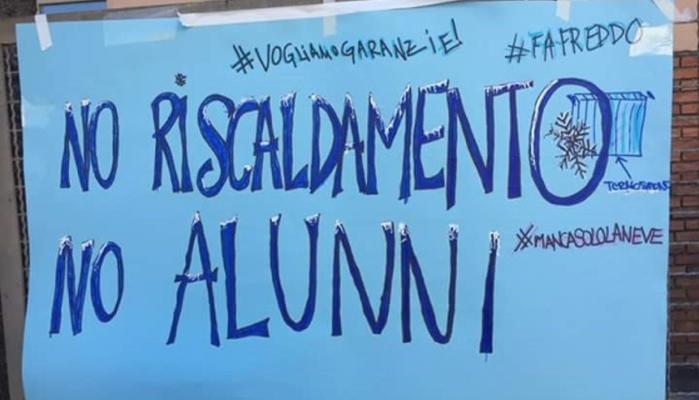 #VOGLIAMOGARANZIE!
#FAFREDDO
NO RISCALDAMENTO
#MANCASOLOLANEVE
NO ALUNNI